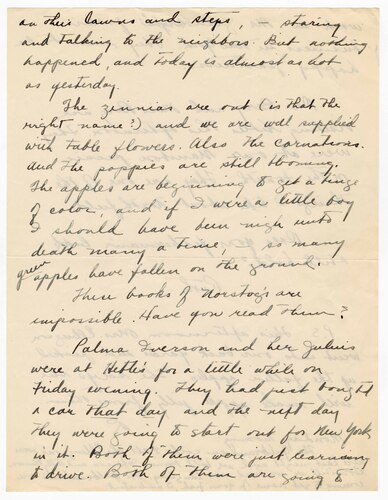 on their lawns and steps, - staring
and talking to the neighbors. But nothing
happened, and today is almost as hot
as yesterday.
The zinnias are out (is that the
right name?) and we are well supplied
with table flowers. Also the carnations.
And the poppies are still blooming.
The apples are beginning to get a tinge
of color, and if I were a little boy
I should have been nigh unto
death many a time, so many
green apples have fallen on the ground.
These books of Norstog's are
impossible. Have you read them?
Palma Iverson and her Julius
were at Hettie's for a little while on
Friday evening. They had just bought
a car that day and the next day
they were going to start out for New York
in it. Both of them were just learning
to drive. Both of them are going to